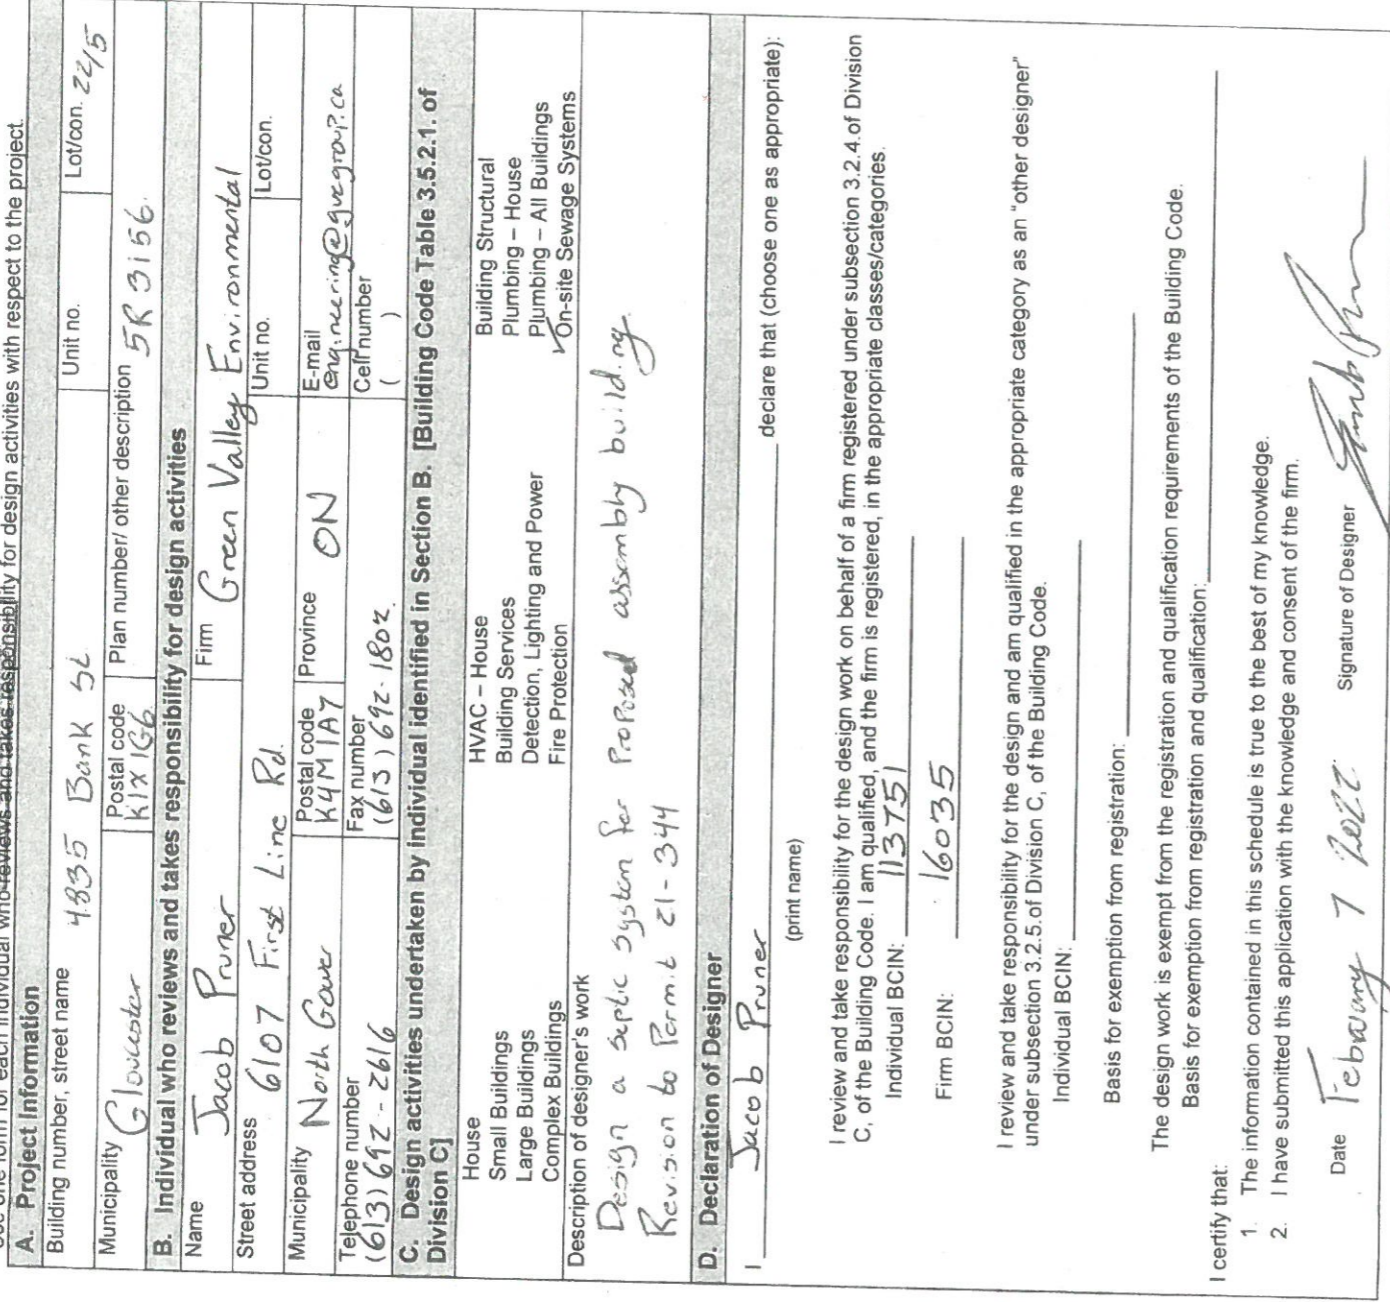 Use one form for each individual who reviews and takes responsibility for design activities with respect to the project.
A. Project Information
Building number, street name 4835 Bank St
Unit no.
Lot/con. 22/5
Municipality Gloucester
Postal code K1X 1G6
Plan number/ other description 5R 3156
B. Individual who reviews and takes responsibility for design activities
Name Jacob Pruner
Firm Green Valley Environmental
Street address 6107 First Line Rd.
Unit no.
Lot/con.
Municipality North Gower
Postal code K4M 1A7
Province ON
E-mail engineering@gvegroup.ca
Telephone number (613) 692-2616
Fax number (613) 692-1802
Cell number ( )
C. Design activities undertaken by individual identified in Section B. [Building Code Table 3.5.2.1. of
Division C]
House
Small Buildings
Large Buildings
Complex Buildings
HVAC – House
Building Services
Detection, Lighting and Power
Fire Protection
Building Structural
Plumbing – House
Plumbing – All Buildings
✓On-site Sewage Systems
Description of designer's work
Design a septic system for Proposed assembly building.
Revision to Permit 21-344
D. Declaration of Designer
I Jacob Pruner declare that (choose one as appropriate):
(print name)
I review and take responsibility for the design work on behalf of a firm registered under subsection 3.2.4.of Division
C, of the Building Code. I am qualified, and the firm is registered, in the appropriate classes/categories.
Individual BCIN: 113751
Firm BCIN: 16035
I review and take responsibility for the design and am qualified in the appropriate category as an "other designer"
under subsection 3.2.5.of Division C, of the Building Code.
Individual BCIN:
Basis for exemption from registration:
The design work is exempt from the registration and qualification requirements of the Building Code.
Basis for exemption from registration and qualification:
I certify that:
1. The information contained in this schedule is true to the best of my knowledge.
2. I have submitted this application with the knowledge and consent of the firm.
Date February 7 2022
Signature of Designer